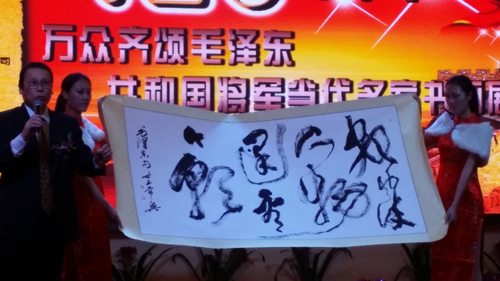 万众齐颂毛泽东
共和国将军当代名家书画
数风流
人物
还看
今朝
毛泽东句